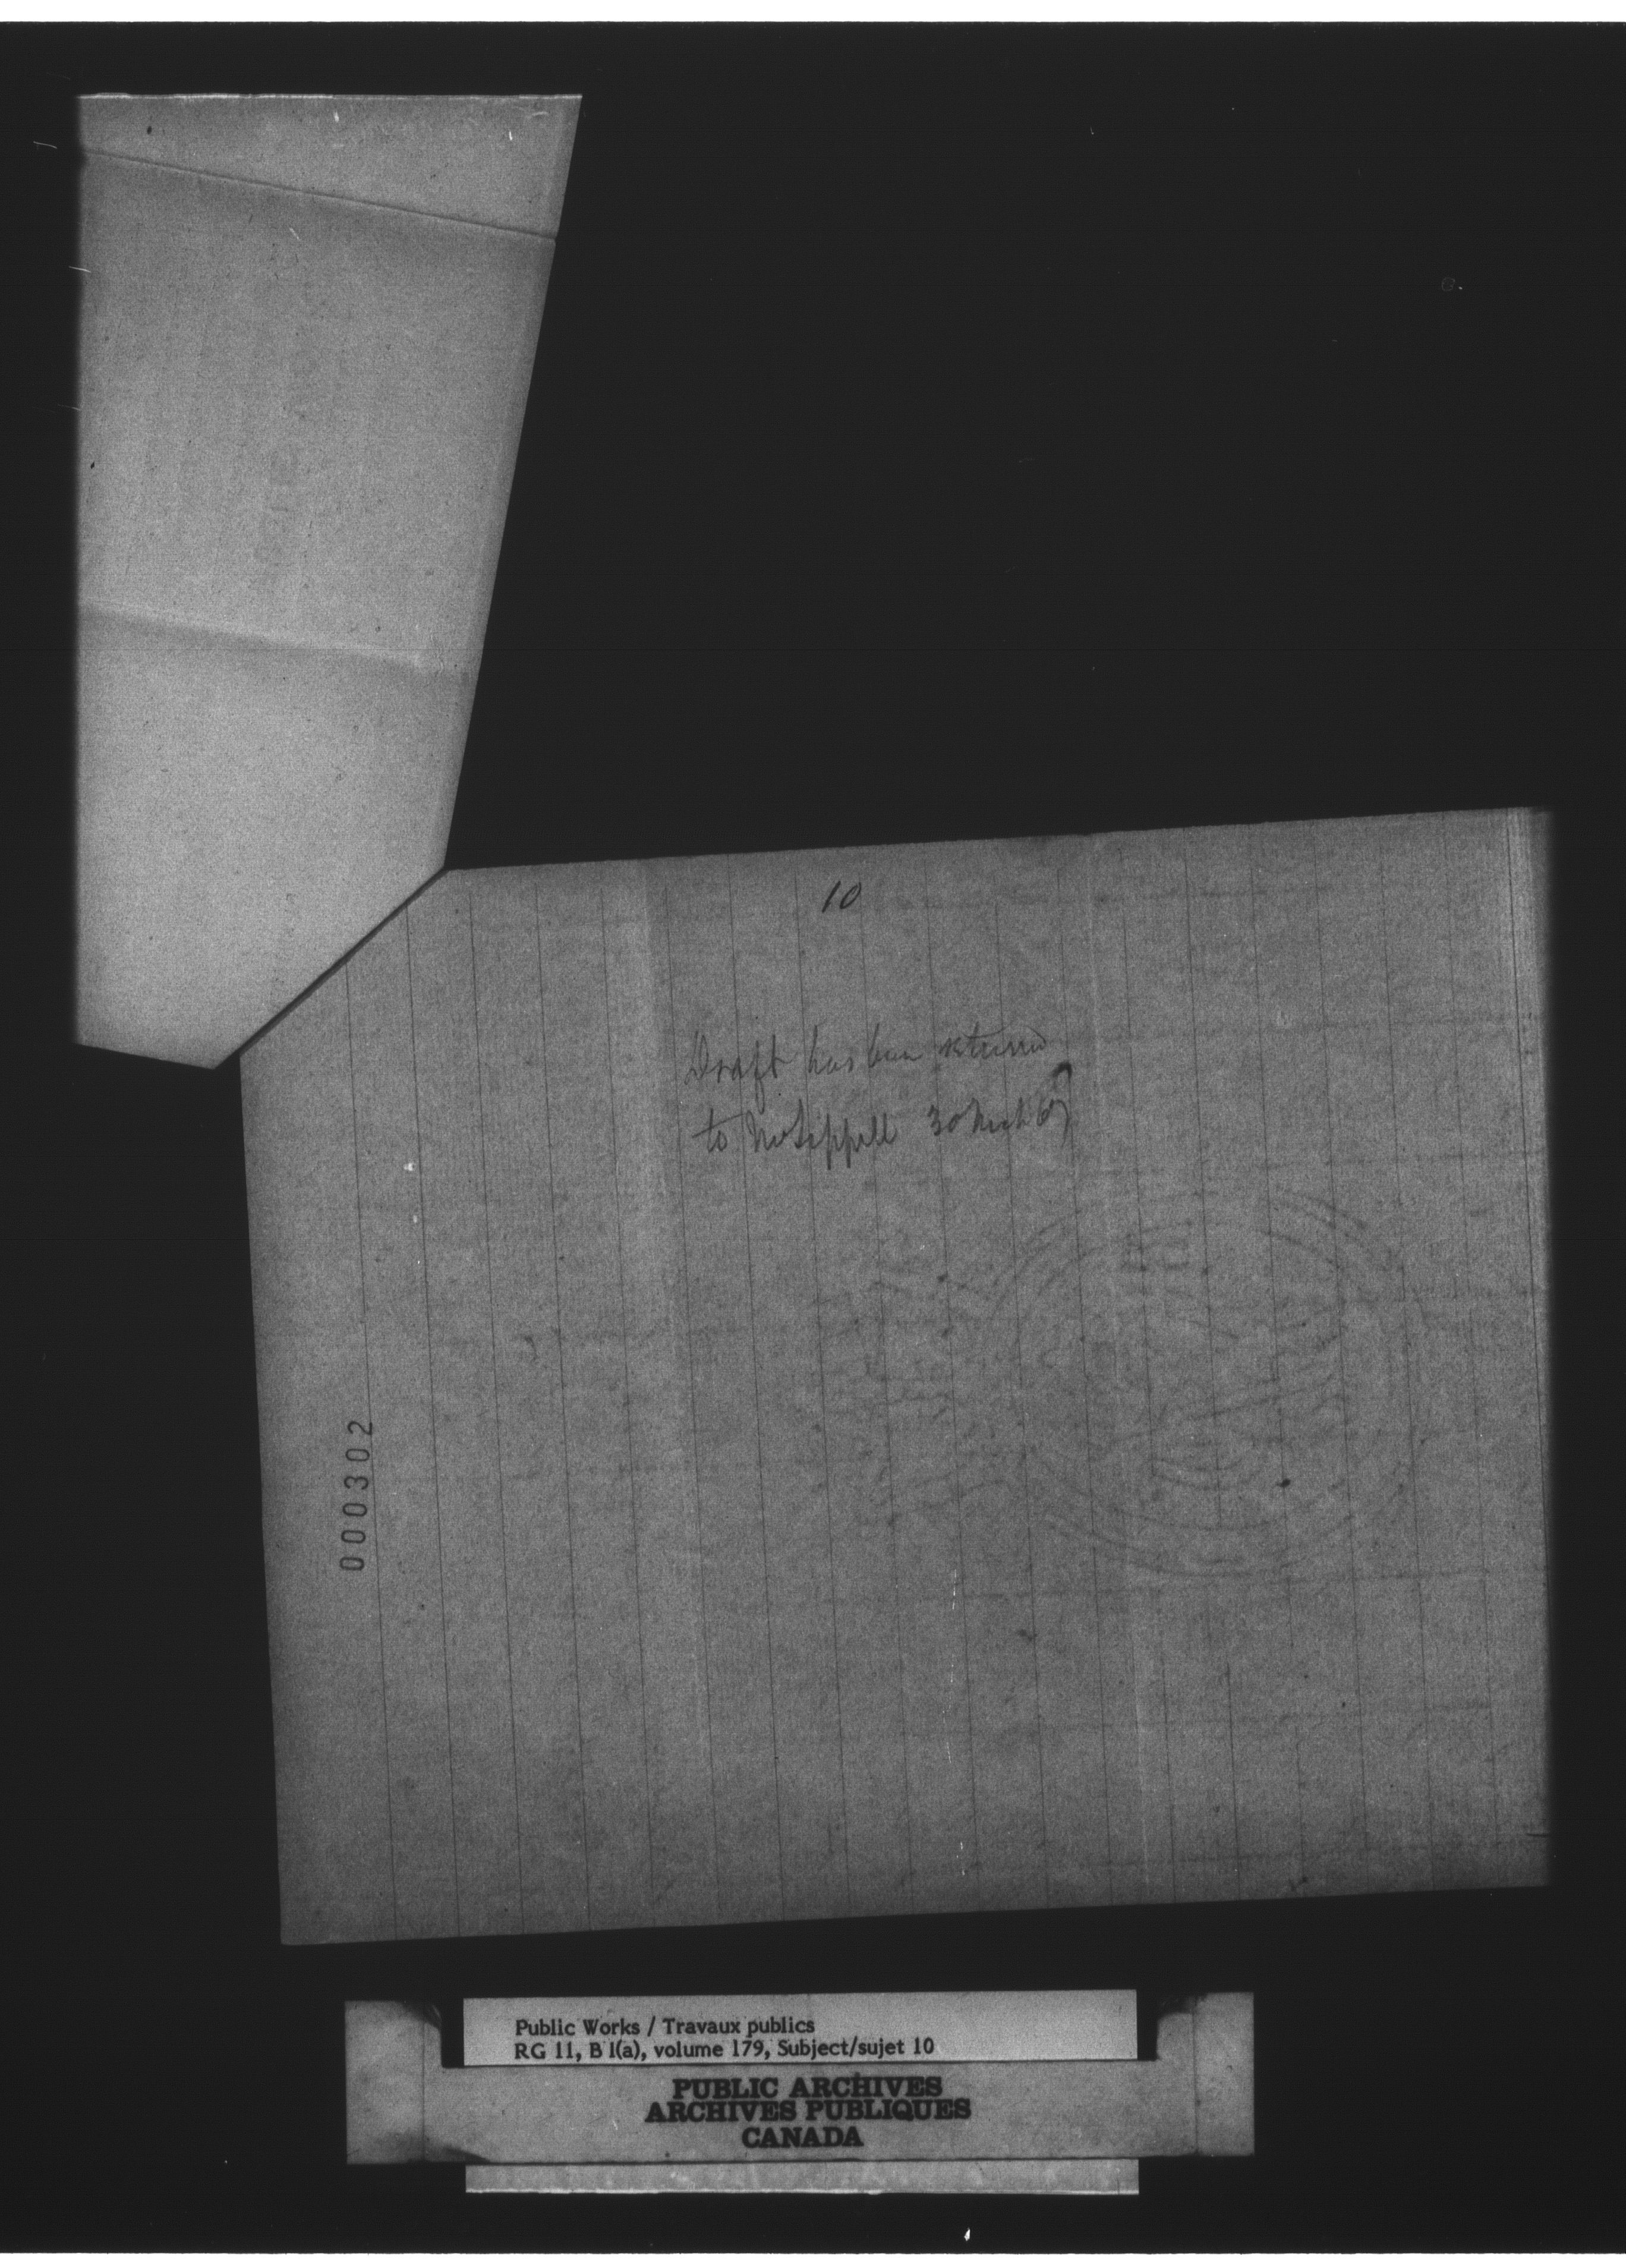 10
Draft has been returned
to Mr Sippell 30 Mch 67
000302
Public Works / Travaux publics
RG 11, B 1(a), volume 179, Subject/sujet 10
PUBLIC ARCHIVES
ARCHIVES PUBLIQUES
CANADA